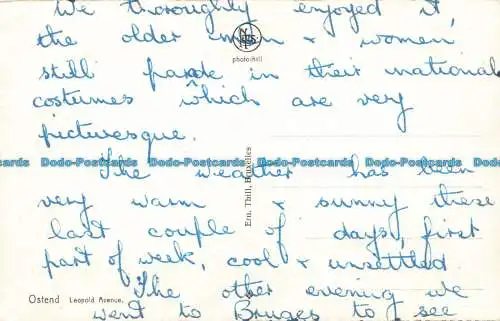 We thoroughly enjoyed it,
the older men & women
still parade in their national
costumes which are very
picturesque.
The weather has been
very warm & sunny these
last couple of days, first
part of week, cool & unsettled
The other evening we
went to Bruges to see
photo-thill
Ern. Thill, Bruxelles
Ostend Leopold Avenue.
Dodo-Postcards Dodo-Postcards Dodo-Postcards Dodo-Postcards